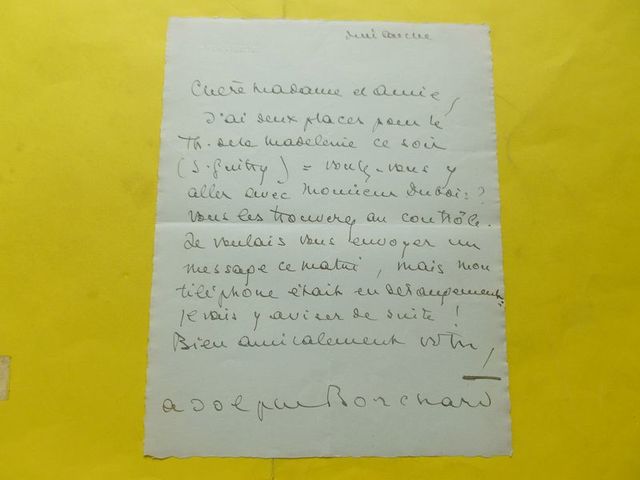 dimanche
Chère Madame et amie,
J'ai deux places pour le
Th. de la Madeleine ce soir
(S. Guitry) = voulez-vous y
aller avec Monsieur Dubois ?
Vous les trouverez au contrôle.
Je voulais vous envoyer un
message ce matin, mais mon
téléphone était en dérangement.
Je vais y aviser de suite !
Bien amicalement vôtre,
Adolphe Borchard